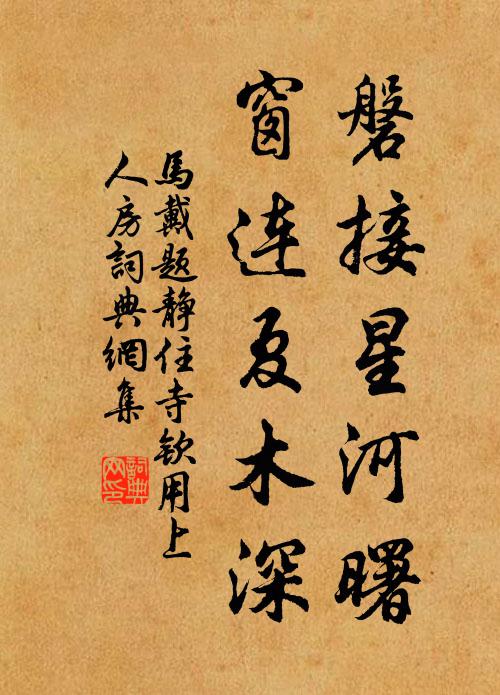 磐接星河曙
窗連夏木深
馬戴题静住寺钦用上
人房詞典網集
詞典
网印